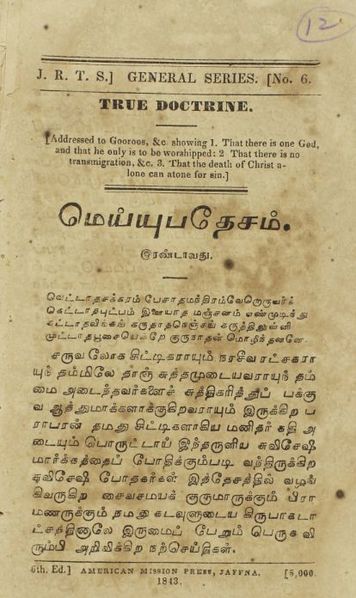 12
J. R. T. S.] GENERAL SERIES. [No. 6.
TRUE DOCTRINE.
[Addressed to Gooroos, &c. showing 1. That there is one God,
and that he only is to be worshipped: 2 That there is no
transmigration, &c. 3. That the death of Christ a-
lone can atone for sin.]
மெய்யுபதேசம்.
இரண்டாவது.
வெட்டாதசக்கரம் பேசாதமந்திரம்வேறொருவர்க்
கெட்டாதபுட்பம் இறையாத மஞ்சனம்
கட்டாதலிங்கம் கருதாதநெஞ்சங் கருத்தினுன்னி
முட்டாதபூசையன்றோ குருநாதன் மொழிந்தனனே.
சருவலோக சிட்டிகராயும் நரசீவரட்சகரா
யுந் தம்மிலே தாஞ் சுத்தமுடையவராயுந் தம்
மை அடைந்தவர்களைச் சுத்திகரித்துப் பக்கு
வ ஆத்துமாக்களாக்குகிறவராயும் இருக்கிற ப
ராபரன் தமது சிட்டிகளாகிய மனிதர் கதி அ
டையும் பொருட்டாய் இந்தருளிய சுவிசேஷ
மார்க்கத்தைப் போதிக்கும்படி வந்திருக்கிற
சுவிசேஷ போதகர்கள் இத்தேசத்தில் வழங்
கிவருகிற சைவசமயக் குருமாருக்கும் பிரா
மணருக்கும் நமது கடவுளுடைய கிருபாகடா
ட்சத்தினாலே இருமைப் பேறும் பெருக வி
ரும்பி அறிவிக்கிற நற்செய்திகள்.
6th. Ed.] AMERICAN MISSION PRESS, JAFFNA. [5,000.
1843.